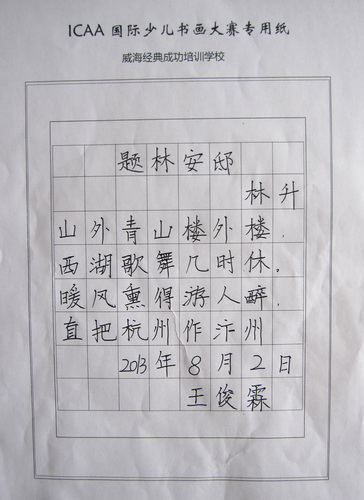 ICAA 国际少儿书画大赛专用纸
威海经典成功培训学校
题林安邸
林升
山外青山楼外楼.
西湖歌舞几时休.
暖风熏得游人醉.
直把杭州作汴州
2013年8月2日
王俊霖